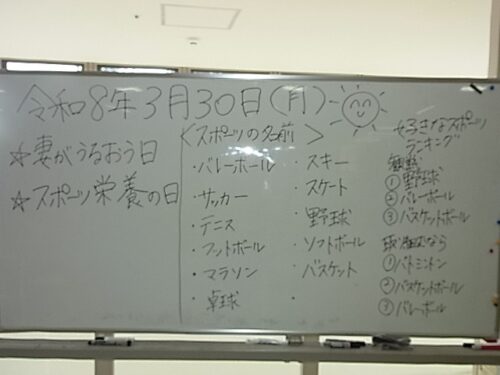 令和8年3月30日(月)
☆妻がうるおう日
☆スポーツ栄養の日
<スポーツの名前>
・バレーボール
・サッカー
・テニス
・フットボール
・マラソン
・卓球
・スキー
・スケート
・野球
・ソフトボール
・バスケット
・
好きなスポーツ
ランキング
観戦
①野球
②バレーボール
③バスケットボール
なら
①バトミントン
②バスケットボール
③バレーボール